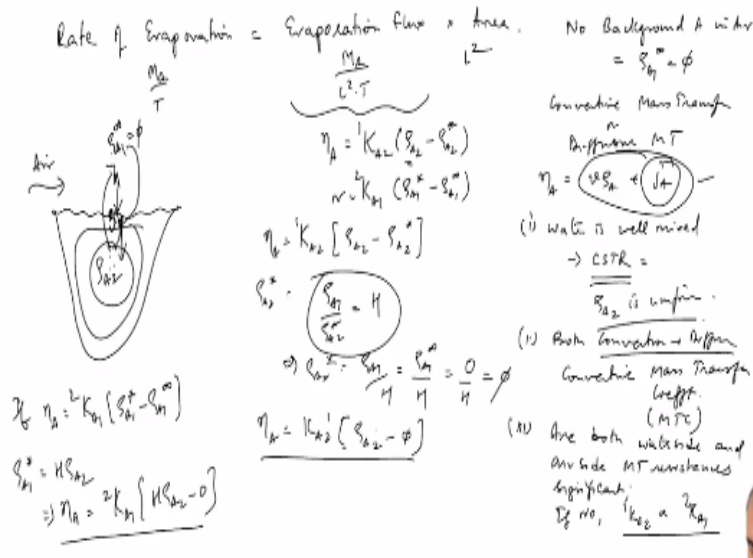 Rate of Evaporation = Evaporation flux × Area.
M_A / T
M_A / L²·T
L²
ρ_A1^∞ = φ
Air
ρ_A2
η_A = ¹K_A2 (ρ_A2 - ρ_A2^*)
²K_A1 (ρ_A1^* - ρ_A1^∞)
η_A = ¹K_A2 [ρ_A2 - ρ_A2^*]
ρ_A1 / ρ_A2 = H
⇒ ρ_A2^* = ρ_A1 / H = ρ_A1^∞ / H = 0 / H = φ
η_A = K_A2^1 [ρ_A2 - φ]
If η_A = ²K_A1 [ρ_A1^* - ρ_A1^∞]
ρ_A1^* = Hρ_A2
⇒ η_A = ²K_A1 [Hρ_A2 - 0]
No Background A in Air
= ρ_A1^∞ = φ
Convective Mass Transfer
Diffusive MT
η_A = vρ_A + J_A
(i) Water is well mixed
→ CSTR =
ρ_A2 is uniform.
(ii) Both Convection + Diffusion
Convective Mass Transfer
Coefft.
(MTC)
(iii) Are both waterside and
airside MT resistances
significant.
If no, ¹K_A2 ²K_A1